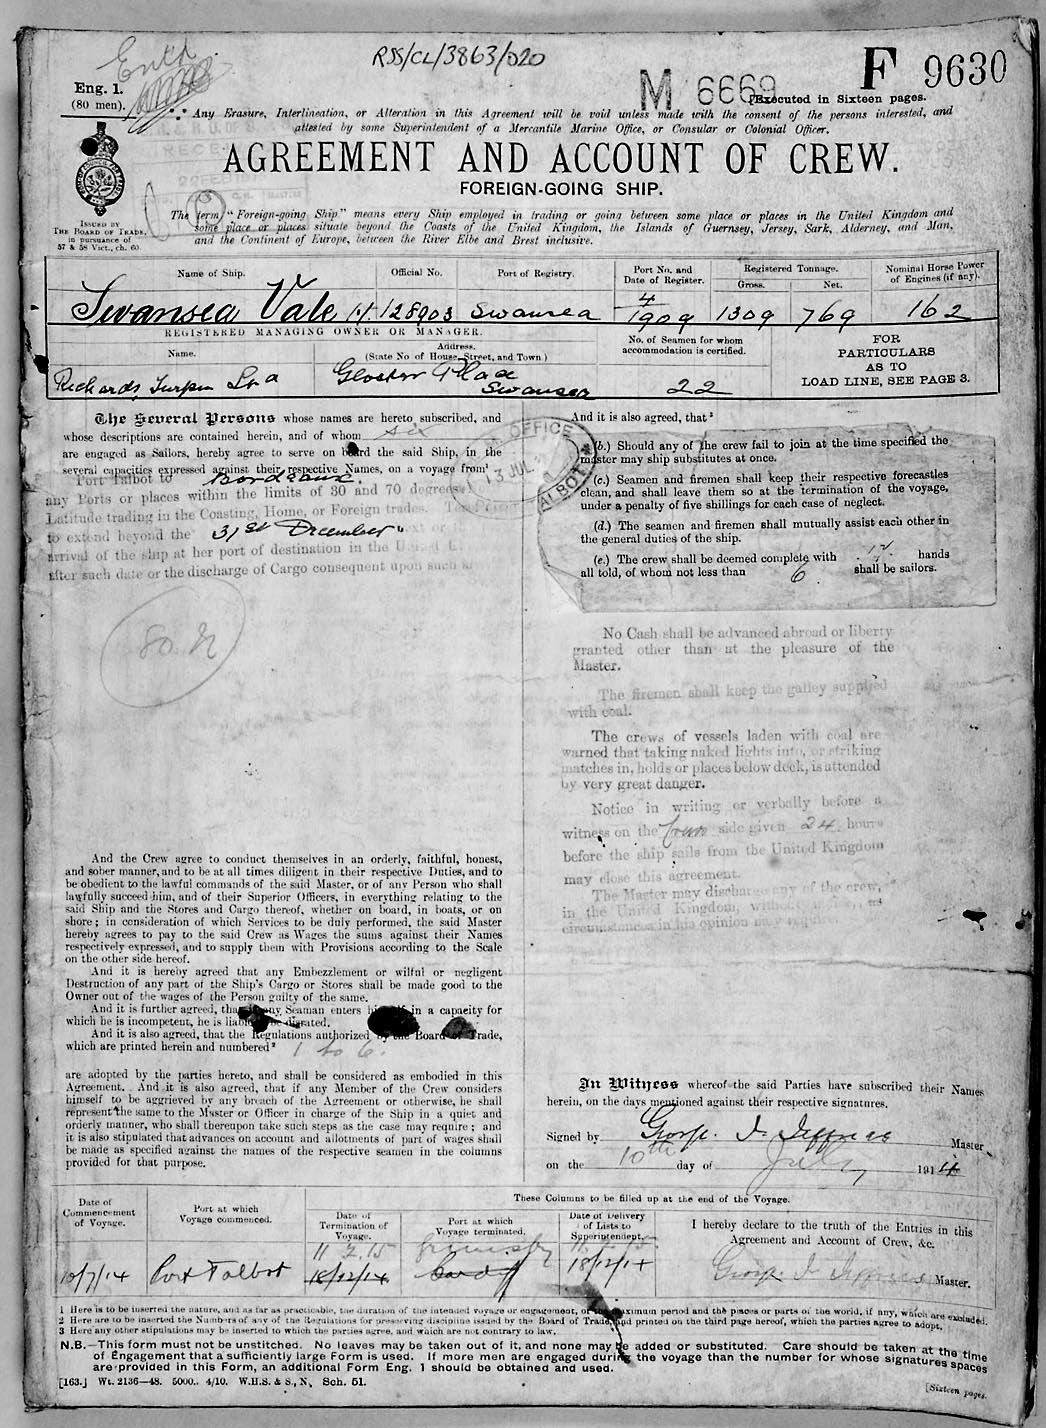 RSS/CL/3863/520
F 9630
M 6669
Eng. 1.
(80 men).
[Executed in Sixteen pages.
*** Any Erasure, Interlineation, or Alteration in this Agreement will be void unless made with the consent of the persons interested, and
attested by some Superintendent of a Mercantile Marine Office, or Consular or Colonial Officer.
AGREEMENT AND ACCOUNT OF CREW.
FOREIGN-GOING SHIP.
ISSUED BY
THE BOARD OF TRADE,
in pursuance of
57 & 58 Vict., ch. 60
The term "Foreign-going Ship" means every Ship employed in trading or going between some place or places in the United Kingdom and
some place or places situate beyond the Coasts of the United Kingdom, the Islands of Guernsey, Jersey, Sark, Alderney, and Man,
and the Continent of Europe, between the River Elbe and Brest inclusive.
Name of Ship. Official No. Port of Registry. Port No. and Date of Register. Registered Tonnage. Gross. Net. Nominal Horse Power of Engines (if any).
Swansea Vale 128903 Swansea 4/1909 1309 769 162
REGISTERED MANAGING OWNER OR MANAGER.
Name. Address. (State No of House, Street, and Town.)
No. of Seamen for whom accommodation is certified.
FOR
PARTICULARS
AS TO
LOAD LINE, SEE PAGE 3.
Richards, Turpin Ltd Gloster Place
Swansea 22
The Several Persons whose names are hereto subscribed, and
whose descriptions are contained herein, and of whom six
are engaged as Sailors, hereby agree to serve on board the said Ship, in the
several capacities expressed against their respective Names, on a voyage from¹
Port Talbot to Bordeaux.
any Ports or places within the limits of 30 and 70 degrees
Latitude trading in the Coasting, Home, or Foreign trades,
to extend beyond the 31st December next or the
arrival of the ship at her port of destination in the
after such date or the discharge of Cargo consequent upon such
And the Crew agree to conduct themselves in an orderly, faithful, honest,
and sober manner, and to be at all times diligent in their respective Duties, and to
be obedient to the lawful commands of the said Master, or of any Person who shall
lawfully succeed him, and of their Superior Officers, in everything relating to the
said Ship and the Stores and Cargo thereof, whether on board, in boats, or on
shore; in consideration of which Services to be duly performed, the said Master
hereby agrees to pay to the said Crew as Wages the sums against their Names
respectively expressed, and to supply them with Provisions according to the Scale
on the other side hereof.
And it is hereby agreed that any Embezzlement or wilful or negligent
Destruction of any part of the Ship's Cargo or Stores shall be made good to the
Owner out of the wages of the Person guilty of the same.
And it is further agreed, that if any Seaman enters himself in a capacity for
which he is incompetent, he is liable to be disrated.
And it is also agreed, that the Regulations authorized by the Board of Trade,
which are printed herein and numbered² 1 to 6.
are adopted by the parties hereto, and shall be considered as embodied in this
Agreement. And it is also agreed, that if any Member of the Crew considers
himself to be aggrieved by any breach of the Agreement or otherwise, he shall
represent the same to the Master or Officer in charge of the Ship in a quiet and
orderly manner, who shall thereupon take such steps as the case may require; and
it is also stipulated that advances on account and allotments of part of wages shall
be made as specified against the names of the respective seamen in the columns
provided for that purpose.
And it is also agreed, that³
OFFICE
13 JUL
(b.) Should any of the crew fail to join at the time specified the
master may ship substitutes at once.
(c.) Seamen and firemen shall keep their respective forecastles
clean, and shall leave them so at the termination of the voyage,
under a penalty of five shillings for each case of neglect.
(d.) The seamen and firemen shall mutually assist each other in
the general duties of the ship.
(e.) The crew shall be deemed complete with 17 hands
all told, of whom not less than 6 shall be sailors.
No Cash shall be advanced abroad or liberty
granted other than at the pleasure of the
Master.
The firemen shall keep the galley supplied
with coal.
The crews of vessels laden with coal are
warned that taking naked lights into, or striking
matches in, holds or places below deck, is attended
by very great danger.
Notice in writing or verbally before a
witness on the side given 24 hours
before the ship sails from the United Kingdom
may close this agreement.
The Master may discharge any of the crew,
in the United Kingdom,
circumstances in his opinion may
In Witness whereof the said Parties have subscribed their Names
herein, on the days mentioned against their respective signatures.
Signed by George I. Jeffreys Master
on the 10th day of July 1914
These Columns to be filled up at the end of the Voyage.
Date of Commencement of Voyage. Port at which Voyage commenced. Date of Termination of Voyage. Port at which Voyage terminated. Date of Delivery of Lists to Superintendent.
I hereby declare to the truth of the Entries in this
Agreement and Account of Crew, &c.
11.2.15 Grimsby 11.2.15
10/7/14 Port Talbot 18/12/14 Cardiff 18/12/14 George I. Jeffreys Master.
1 Here is to be inserted the nature, and as far as practicable, the duration of the intended voyage or engagement, or the maximum period and the places or parts of the world, if any, which are excluded.
2 Here are to be inserted the Numbers of any of the Regulations for preserving discipline issued by the Board of Trade, and printed on the third page hereof, which the parties agree to adopt.
3 Here any other stipulations may be inserted to which the parties agree, and which are not contrary to law.
N.B.—This form must not be unstitched. No leaves may be taken out of it, and none may be added or substituted. Care should be taken at the time
of Engagement that a sufficiently large Form is used. If more men are engaged during the voyage than the number for whose signatures spaces
are provided in this Form, an additional Form Eng. 1 should be obtained and used.
[163.] Wt. 2136—48. 5000.. 4/10. W.H.S. & S., N. Sch. 51.
[Sixteen pages.